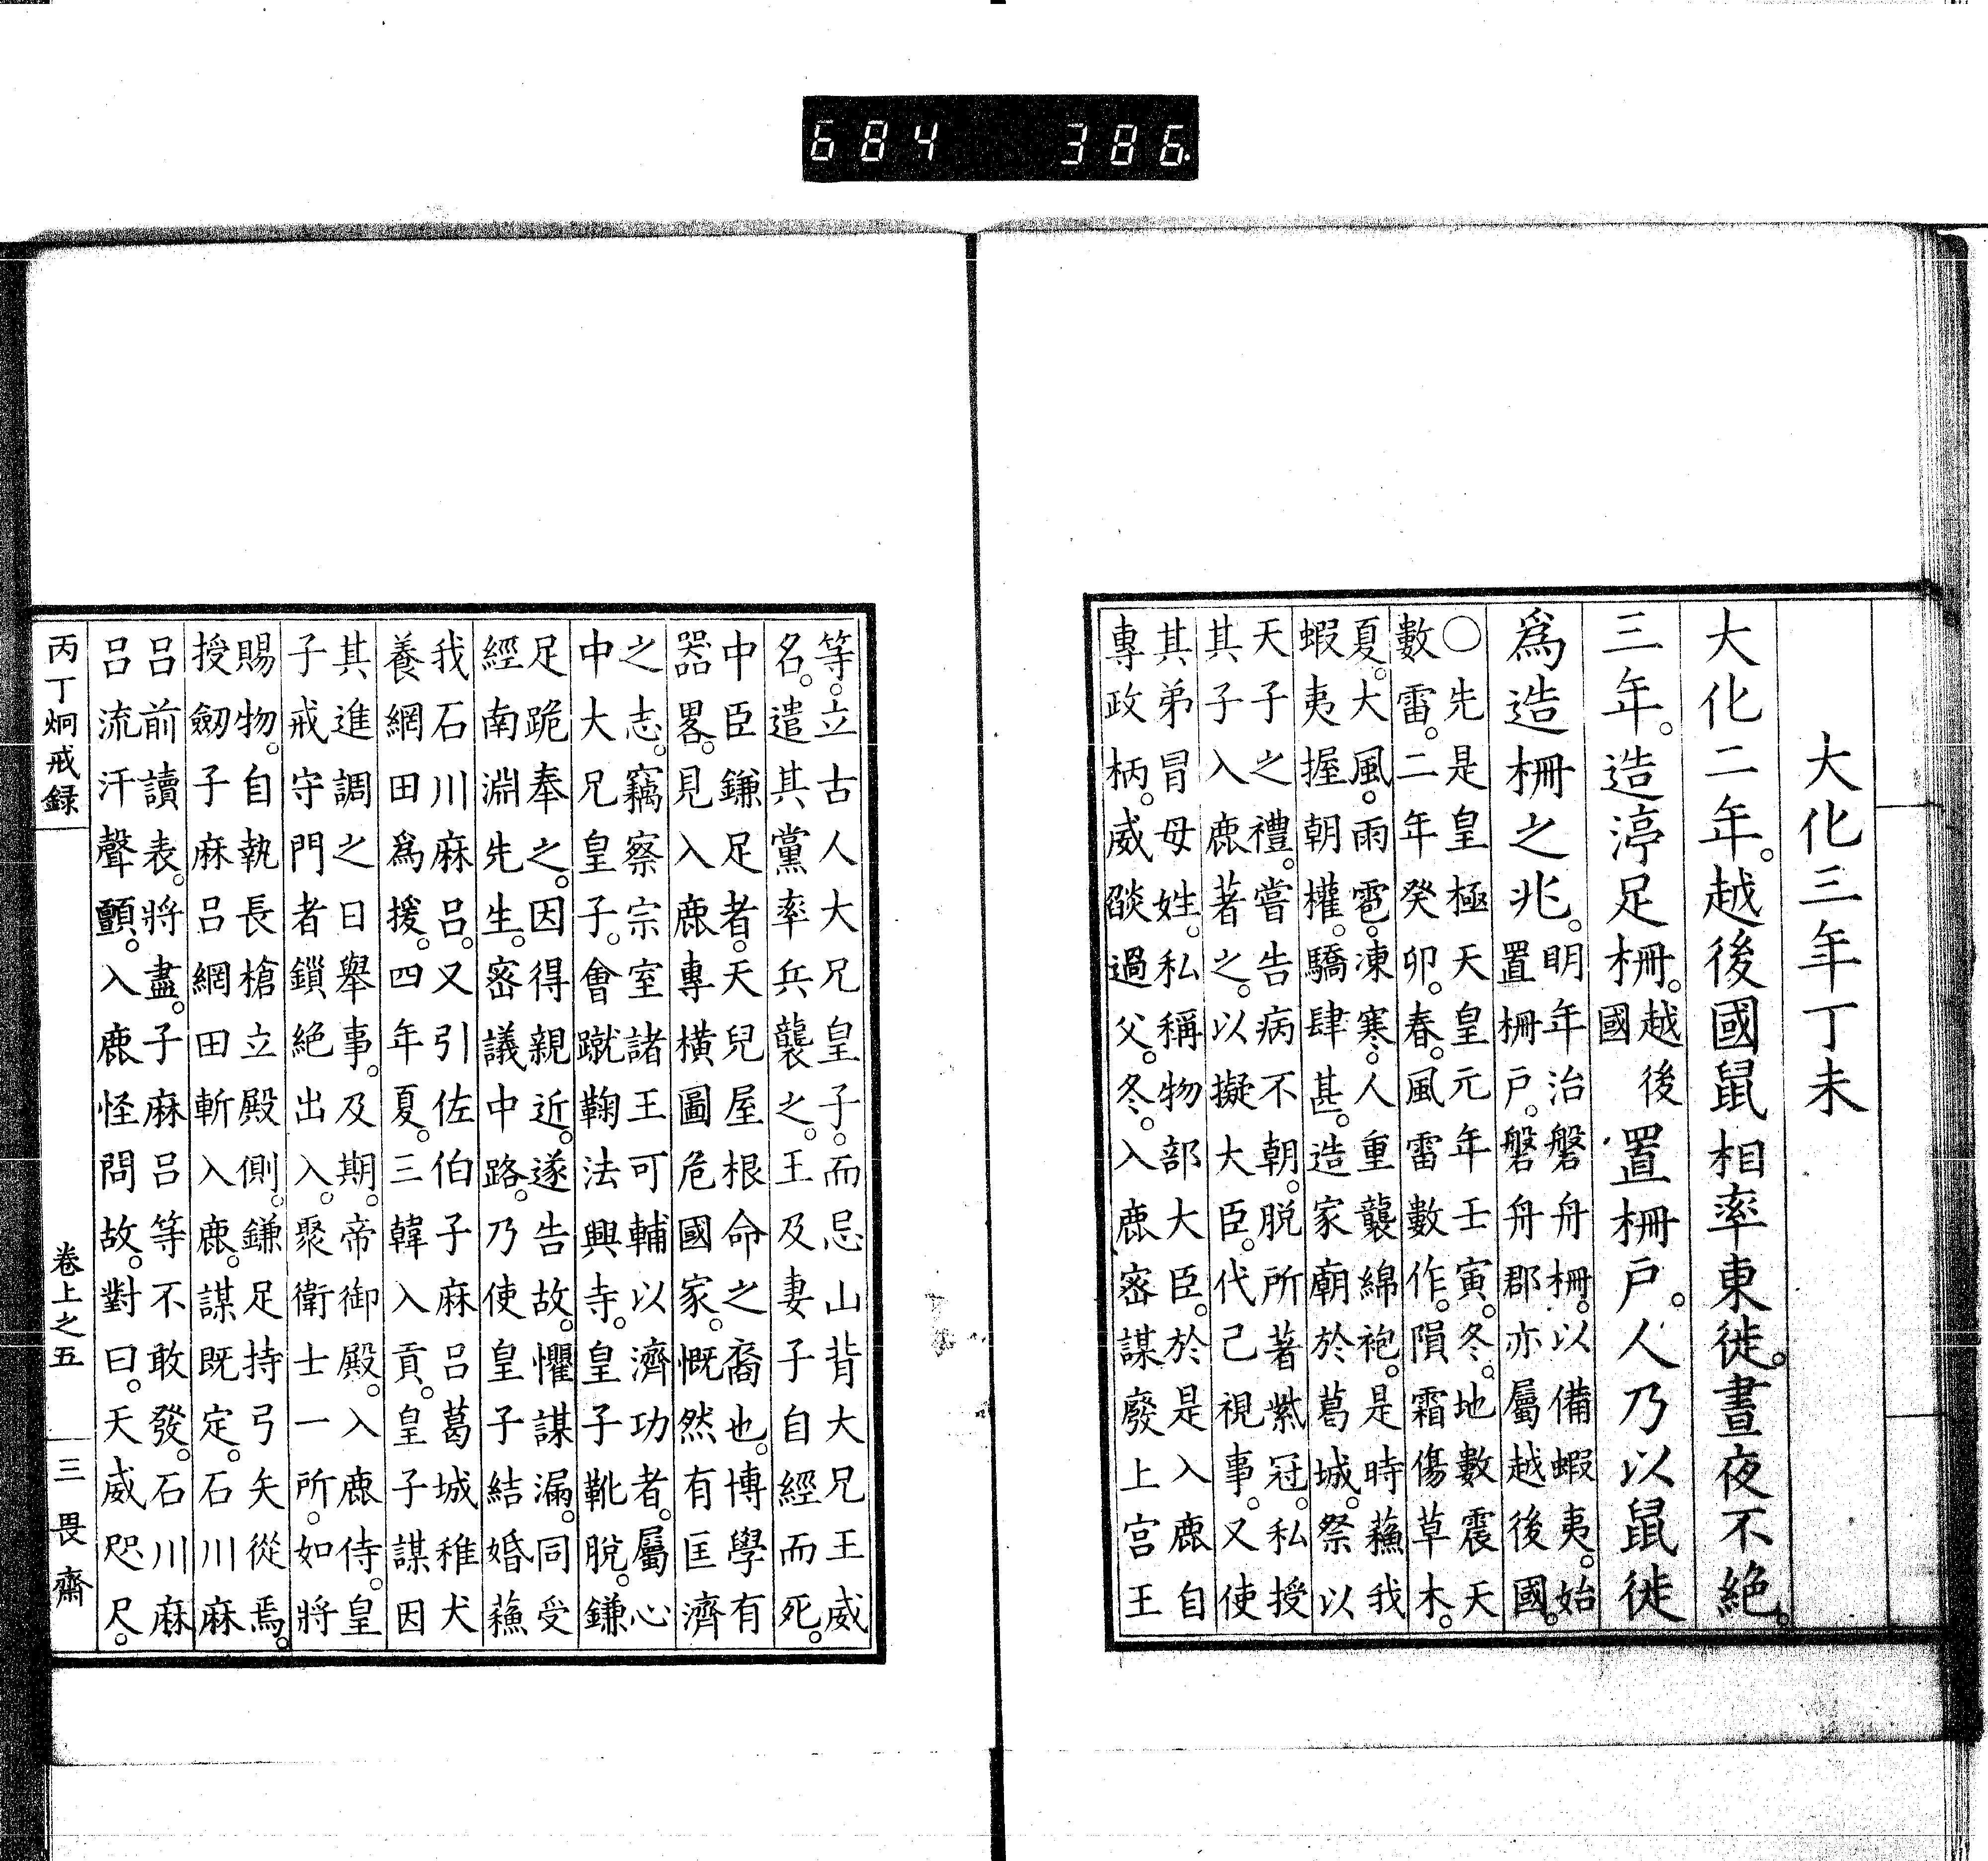 684 386.
大化三年丁未
大化二年。越後國鼠相率東徙。晝夜不絶。
三年。造渟足柵。越後
國
置柵戶。人乃以鼠徙
爲造柵之兆。明年治磐舟柵。以備蝦夷。始
置柵戶。磐舟郡亦屬越後國。
○先是皇極天皇元年壬寅。冬。地數震天
數雷。二年癸卯。春。風雷數作。隕霜傷草木。
夏。大風。雨雹。凍寒。人重襲綿袍。是時蘓我
蝦夷握朝權。驕肆甚。造家廟於葛城。祭以
天子之禮。嘗告病不朝。脱所著紫冠。私授
其子入鹿著之。以擬大臣。代己視事。又使
其弟冒母姓。私稱物部大臣。於是入鹿自
專政柄。威燄過父。冬。入鹿密謀廢上宮王
等。立古人大兄皇子。而忌山背大兄王威
名。遣其黨率兵襲之。王及妻子自經而死。
中臣鎌足者。天兒屋根命之裔也。博學有
器畧。見入鹿專横圖危國家。慨然有匡濟
之志。竊察宗室諸王可輔以濟功者。屬心
中大兄皇子。會蹴鞠法興寺。皇子靴脫。鎌
足跪奉之。因得親近。遂告故。懼謀漏。同受
經南淵先生。密議中路。乃使皇子結婚蘓
我石川麻呂。又引佐伯子麻呂葛城稚犬
養網田爲援。四年夏。三韓入貢。皇子謀因
其進調之日舉事。及期。帝御殿。入鹿侍。皇
子戒守門者鎖絶出入。聚衛士一所。如將
賜物。自執長槍立殿側。鎌足持弓矢從焉。
授劒子麻呂網田斬入鹿。謀既定。石川麻
呂前讀表。將盡。子麻呂等不敢發。石川麻
呂流汗聲顫。入鹿怪問故。對曰。天威咫尺。
丙丁烱戒録
卷上之五
三畏齋